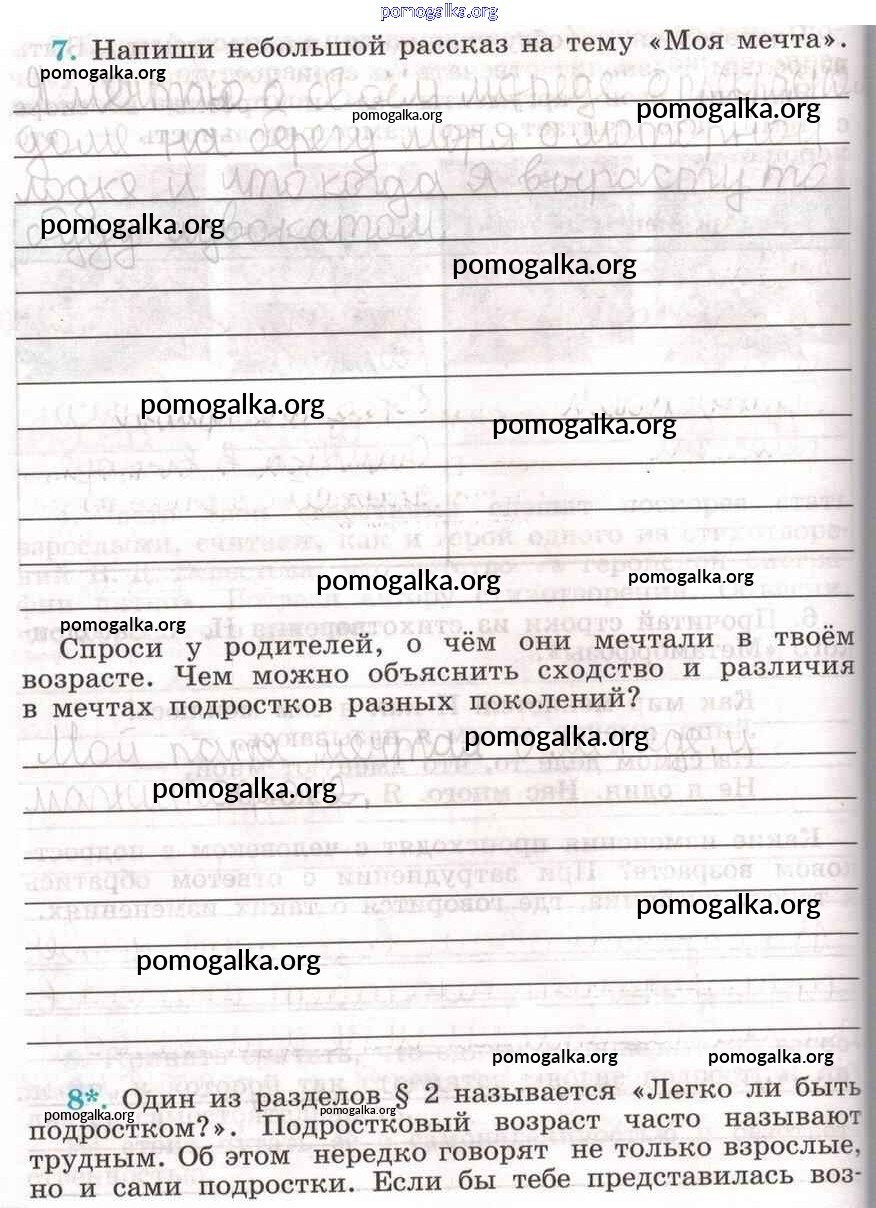 pomogalka.org
7. Напиши небольшой рассказ на тему «Моя мечта».
pomogalka.org
Я мечтаю о своем
pomogalka.org
pomogalka.org
доме на берегу моря о моторной
лодке и что когда я вырасту то
pomogalka.org
буду адвокатом.
pomogalka.org
pomogalka.org
pomogalka.org
pomogalka.org
pomogalka.org
pomogalka.org
Спроси у родителей, о чём они мечтали в твоём
возрасте. Чем можно объяснить сходство и различия
в мечтах подростков разных поколений?
Мой папа мечтал
pomogalka.org
pomogalka.org
pomogalka.org
pomogalka.org
pomogalka.org
pomogalka.org
8*. Один из разделов § 2 называется «Легко ли быть
pomogalka.org
pomogalka.org
подростком?». Подростковый возраст часто называют
трудным. Об этом нередко говорят не только взрослые,
но и сами подростки. Если бы тебе представилась воз-